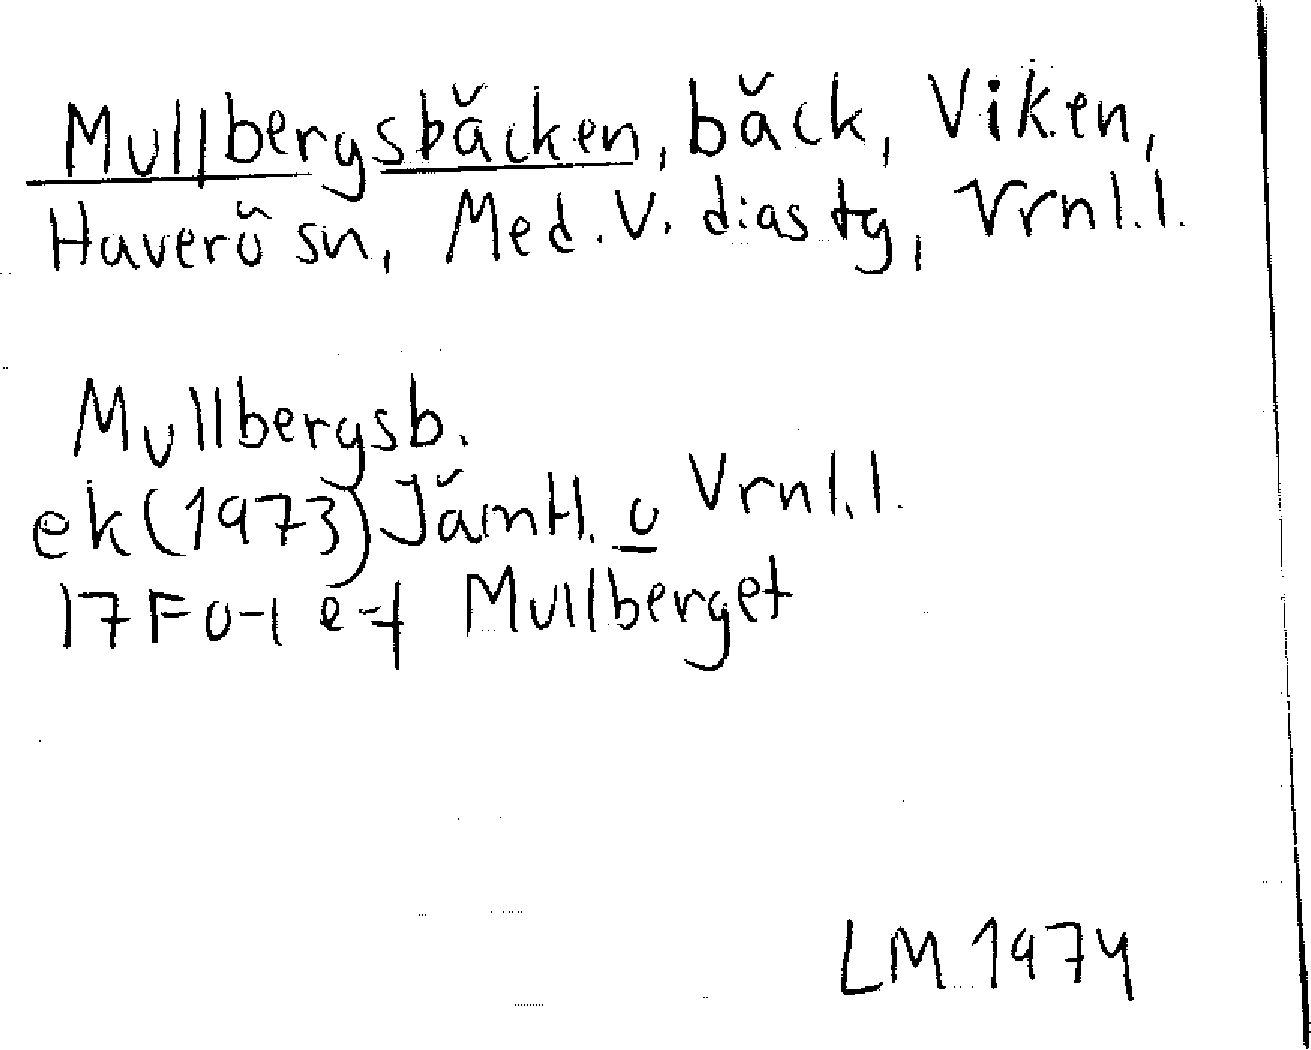 Mullbergsbäcken, bäck, Viken,
Haverö sn, Med. V. dias tg, Vrnl.l.
Mullbergsb.
ek(1973) Jämtl. o Vrnl.l.
17F 0-1 e-f Mullberget
LM 1974